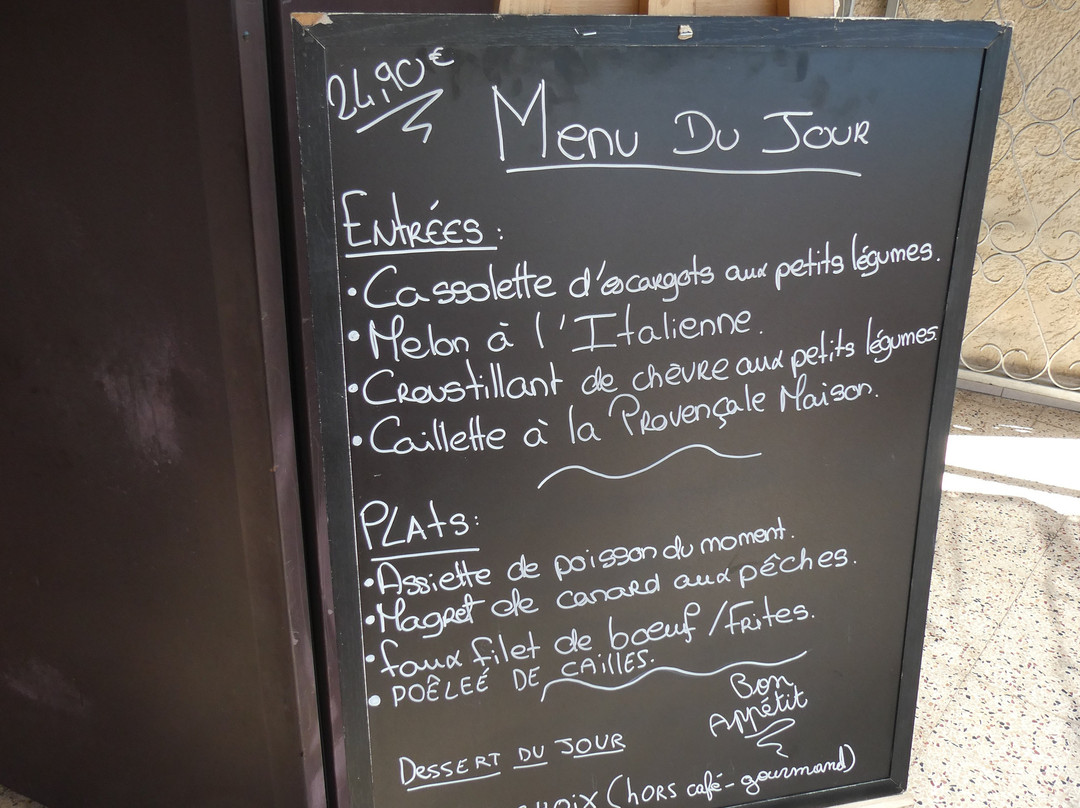 24,90€
Menu Du Jour
Entrées :
• Cassolette d'escargots aux petits légumes.
• Melon à l'Italienne.
• Croustillant de chèvre aux petits légumes.
• Caillette à la Provençale Maison.
Plats :
• Assiette de poisson du moment.
• Magret de canard aux pêches.
• faux filet de boeuf / frites.
• POÊLEÉ DE CAILLES.
Bon
Appétit
DESSERT DU JOUR
(hors café-gourmand)